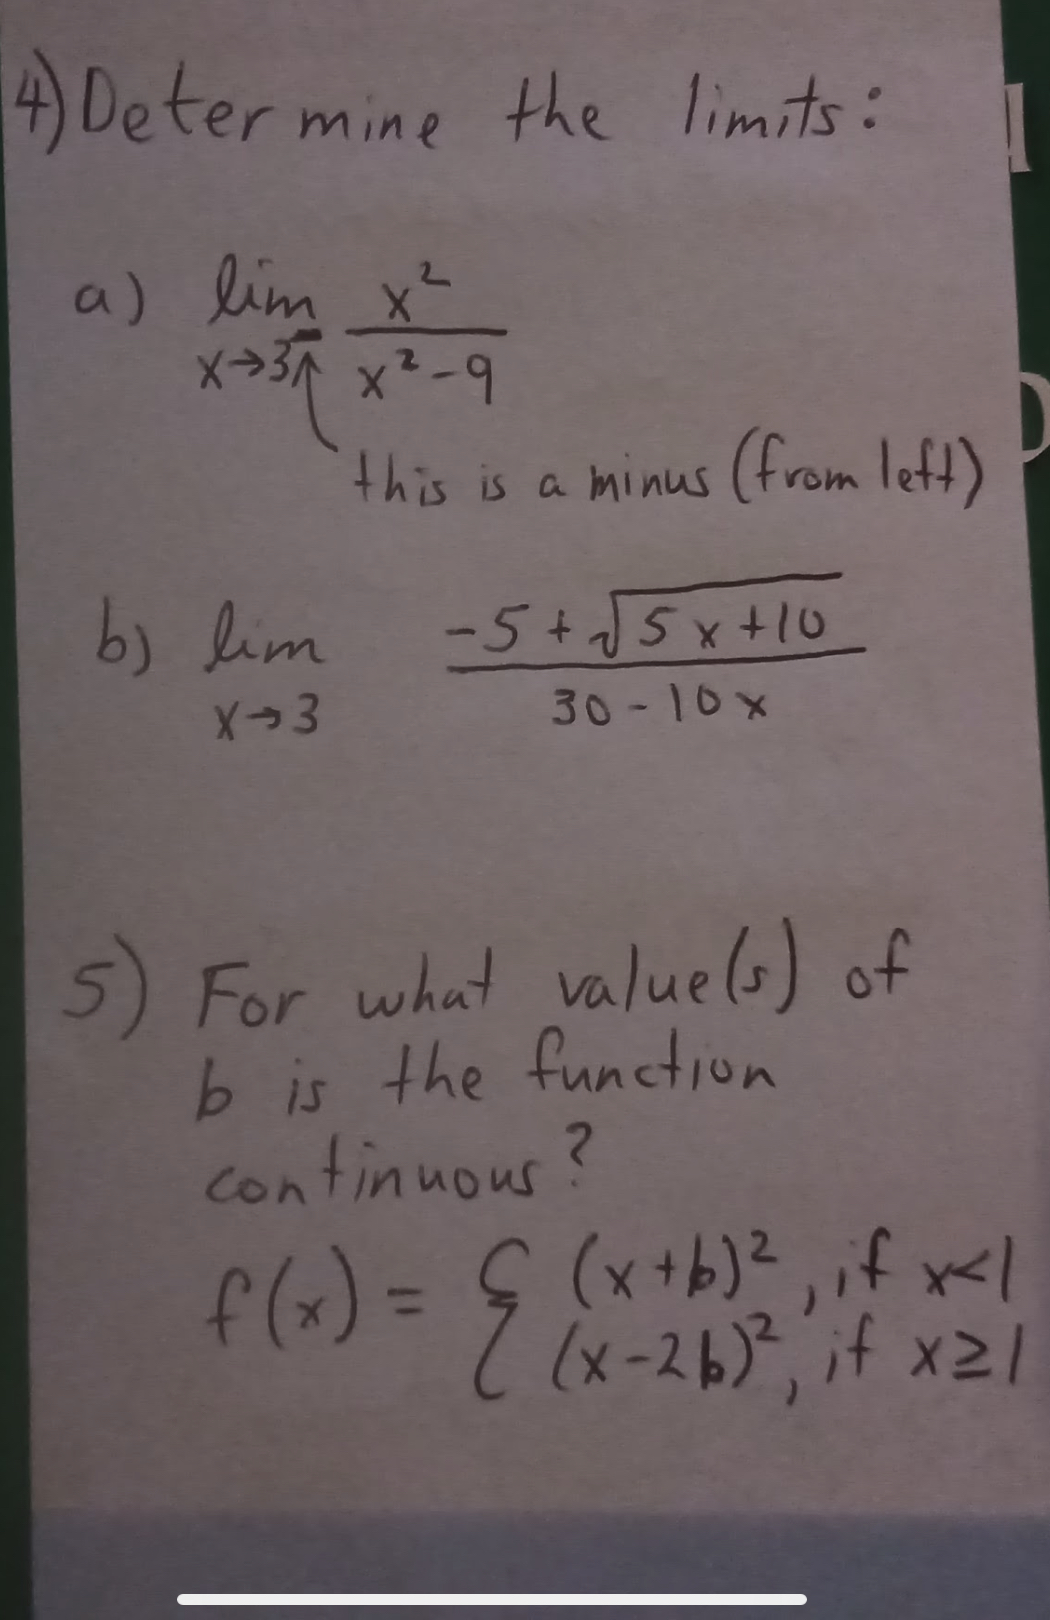 4) Determine the limits:
a) lim x→3⁻ x²/(x²-9)
this is a minus (from left)
b) lim x→3 (-5+√(5x+10))/(30-10x)
5) For what value(s) of
b is the function
continuous?
f(x) = { (x+b)², if x<1
(x-2b)², if x≥1